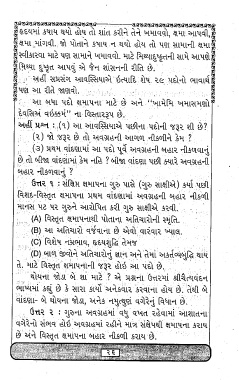 હૃદયમાં કષાય થયો હોય તો શાંત કરીને તેને ખમાવવો, ક્ષમા આપવી,
ક્ષમા માંગવી. જો પોતાને કષાય ન થયો હોય તો પણ સામાની ક્ષમા
સ્વીકારવા માટે પણ સામાને ખમાવવો. માટે મિચ્છાદુષ્કૃતની સામે આપણે
મિથ્યા દુષ્કૃત આપવું એ જૈન શાસનની રીતિ છે.
અહીં સમગ્ર આવસ્સિયાએ ઈત્યાદિ શેષ ૨૯ પદોનો ભાવાર્થ
પણ આ રીતે જાણવો.
આ બધા પદો ક્ષમાપના માટે છે અને "ખામેમિ ખમાસમણો
દેવસિઅં વઇક્કમં" ના વિસ્તારરૂપ છે.
અહીં પ્રશ્ન : (૧) આ આવસ્સિયાએ પછીના પદોની જરૂર શી છે?
(૨) જો જરૂર છે તો અવગ્રહની બહાર નીકળીને કેમ ?
(૩) પ્રથમ વાંદણામાં આ પદો પૂર્વે અવગ્રહની બહાર નીકળવાનું
છે તો બીજા વાંદણામાં કેમ નહિ ? બીજા વાંદણા પછી ક્યારે અવગ્રહની
બહાર નીકળવાનું ?
ઉત્તર ૧ : સંક્ષિપ્ત ક્ષમાપના ગુરુ પાસે (ગુરુ સાક્ષીએ) કર્યા પછી
વિશદ-વિસ્તૃત ક્ષમાપના પ્રથમ વાંદણામાં અવગ્રહની બહાર નીકળી
માનસ પટ પર ગુરુને આરોપિત કરી ગુરુ સાક્ષીએ કરવી.
(A) વિસ્તૃત ક્ષમાપનાથી પોતાના અતિચારોની સ્મૃતિ.
(B) આ અતિચારો વર્જવાના છે એવો વારંવાર ખ્યાલ.
(C) વિશેષ નમ્રભાવ, હૃદયશુદ્ધિ તેમજ
(D) બાળ જીવોને અતિચારોનું જ્ઞાન અને તેમાં અકર્તવ્યબુદ્ધિ થાય
તે. માટે વિસ્તૃત ક્ષમાપનાની જરૂર હોઈ આ પદો છે.
થોયના જોડા બે શા માટે ? એ પ્રશ્નના ઉત્તરમાં શ્રીચૈત્યવંદન
ભાષ્યમાં કહ્યું છે કે સારા કાર્યો અનેકવાર કરવાના હોય છે. તેથી બે
વાંદણા- બે થોયના જોડા, અનેક નમુત્થુણં વગેરેનું વિધાન છે.
ઉત્તર ૨ : ગુરુના અવગ્રહમાં વધુ વખત રહેવામાં આશાતના
વગેરેનો સંભવ હોઈ અવગ્રહમાં રહીને માત્ર સંક્ષેપથી ક્ષમાપના કરાય
છે અને વિસ્તૃત ક્ષમાપના બહાર નીકળી કરાય છે.
૨૬